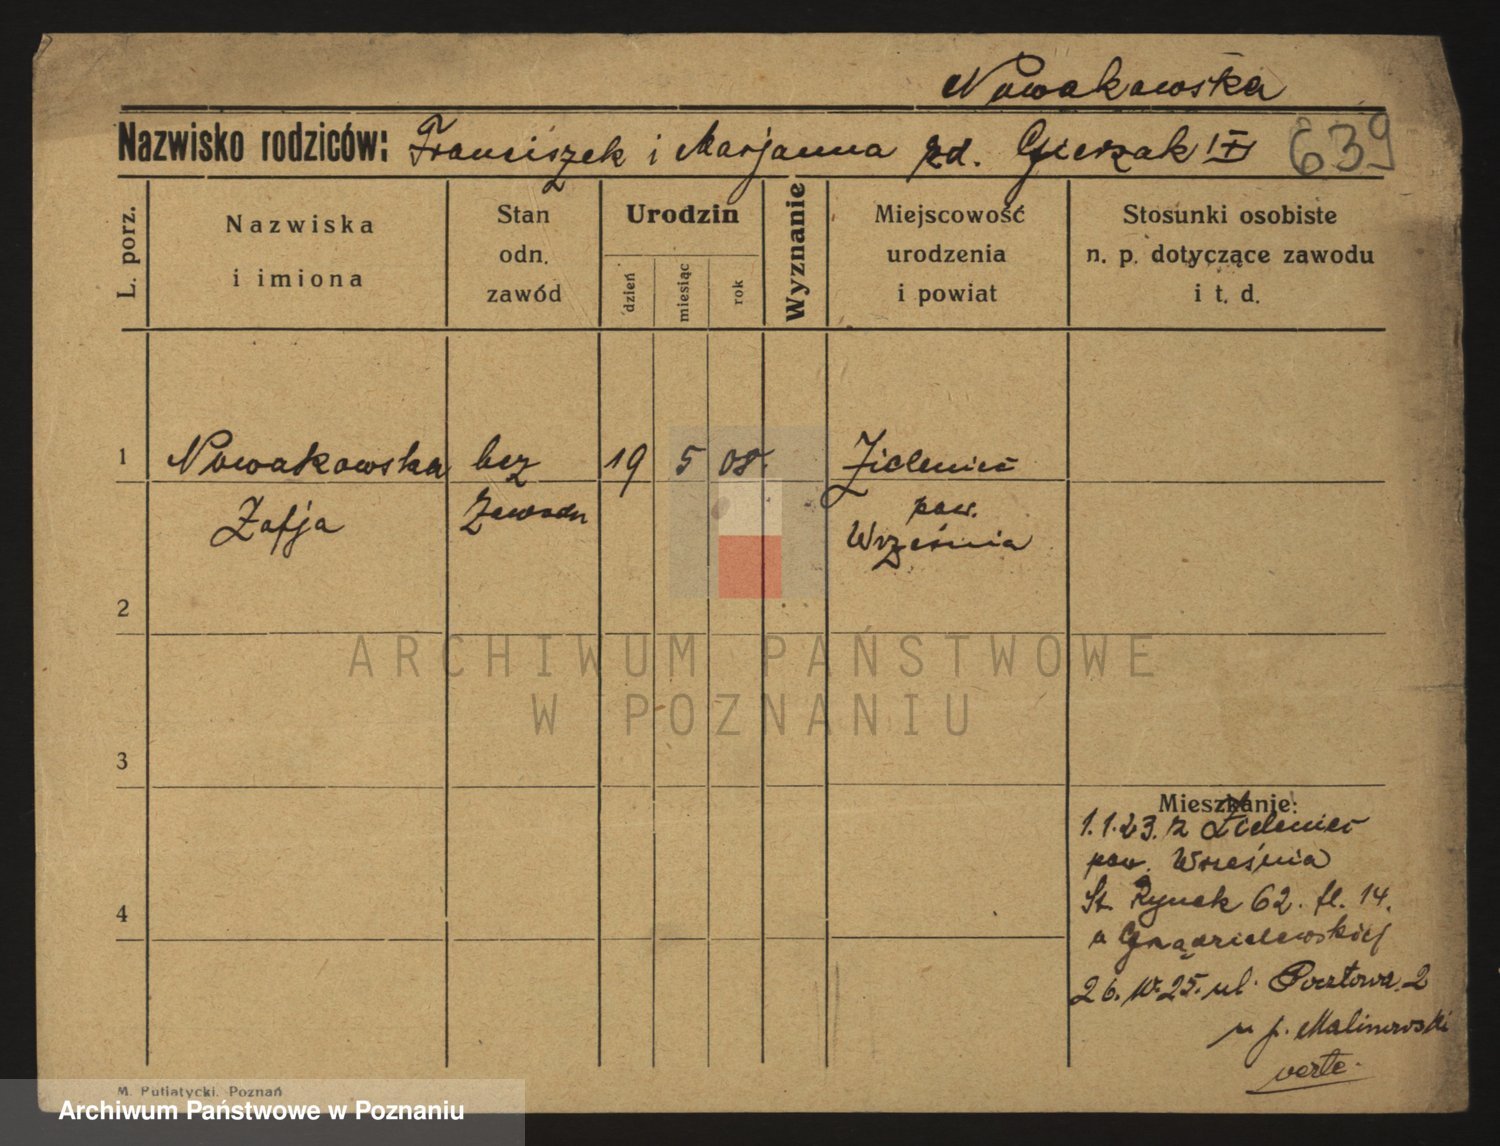 Nowakowska
Nazwisko rodziców: Franciszek i Marjanna zd. Gierzak
639
L. porz.
Nazwiska
i imiona
Stan
odn.
zawód
Urodzin
dzień
miesiąc
rok
Wyznanie
Miejscowość
urodzenia
i powiat
Stosunki osobiste
n. p. dotyczące zawodu
i t. d.
1 Nowakowska bez 19 5 08. Zieleniec
Zofja zawodu pow.
Września
2
ARCHIWUM PAŃSTWOWE
W POZNANIU
3
Mieszkanie:
1.1.23. z Zieleniec
pow. Września
St. Rynek 62. fl. 14.
u
4
26. 25. ul. Pocztowa 2
u p. Malinowski
verte.
M. Putiatycki. Poznań
Archiwum Państwowe w Poznaniu